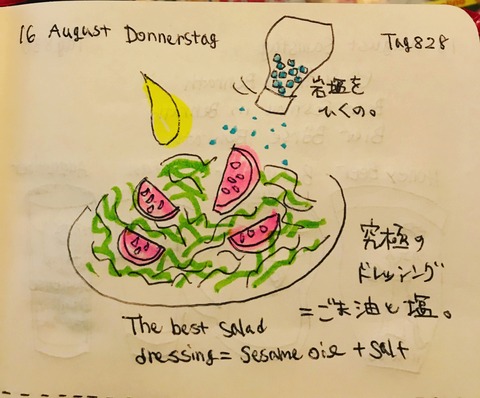 16 August Donnerstag
Tag 828
岩塩を
ひくの。
究極の
ドレッシング
=ごま油と塩。
The best salad
dressing = sesame oil + salt